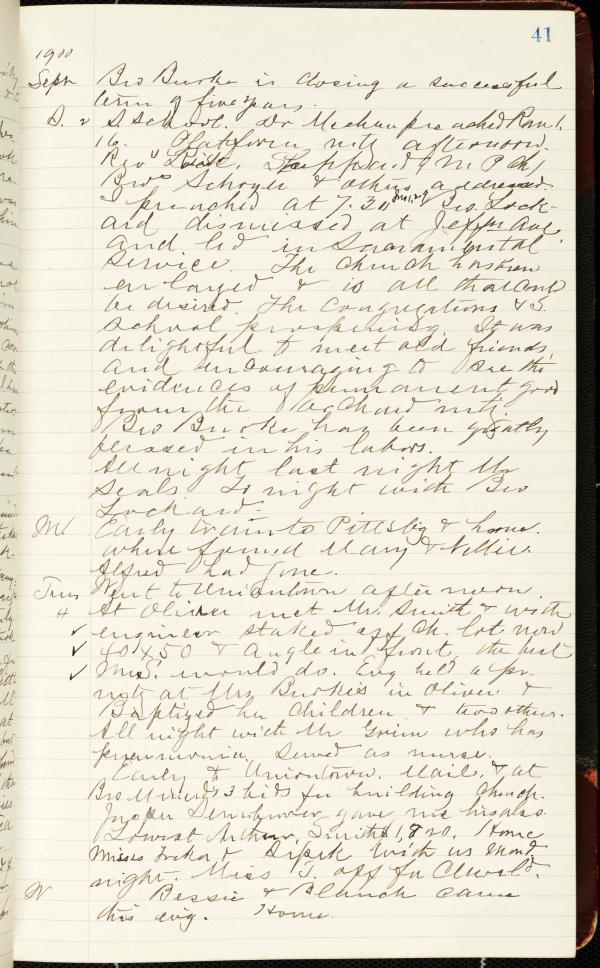 41
1900
Sept Bro Burke is closing a successful
term of five years.
S. 2 S School. Dr Mechem preached Rom 1.
16. Platform mtg afternoon.
Revs (M. P. Ch)
Bros Schoyer & others addressed.
I preached at 7.30 Geo. Lock-
ard dismissed at Jeffn Ave.
and led in Sacramental
Service. The Church has been
enlarged & is all that could
be desired. The Congregations & S.
School prospering. It was
delightful to meet old friends,
and encouraging to see the
evidences of permanent good
from the Orchard mtg.
Bro Burke has been greatly
blessed in his labors.
All night last night Mr
Seals. To night with Bro
Lockard.
M Early train to Pittsbg & home.
where found Mary & Nellie.
Alfred had gone.
Tues Went to Uniontown afternoon.
4 At Oliver met Mr. Smith & with
✓ engineer staked off Ch. lot now
✓ 40 x 50 & angle in front, the best
✓ Mr S. would do. Evg held a pr.
mtg at Mrs Burke's in Oliver &
Baptized her children & two others.
All night with Mr Grim who has
pneumonia. Served as nurse.
Early to Uniontown. Mail. & at
Bro 3 bids for building Church.
gave me his also.
Lowest Arthur Smith 1,820. Home
Misses & with us Mond
night. Miss T. off for
W Bessie & Blanch came
this evg. Home.